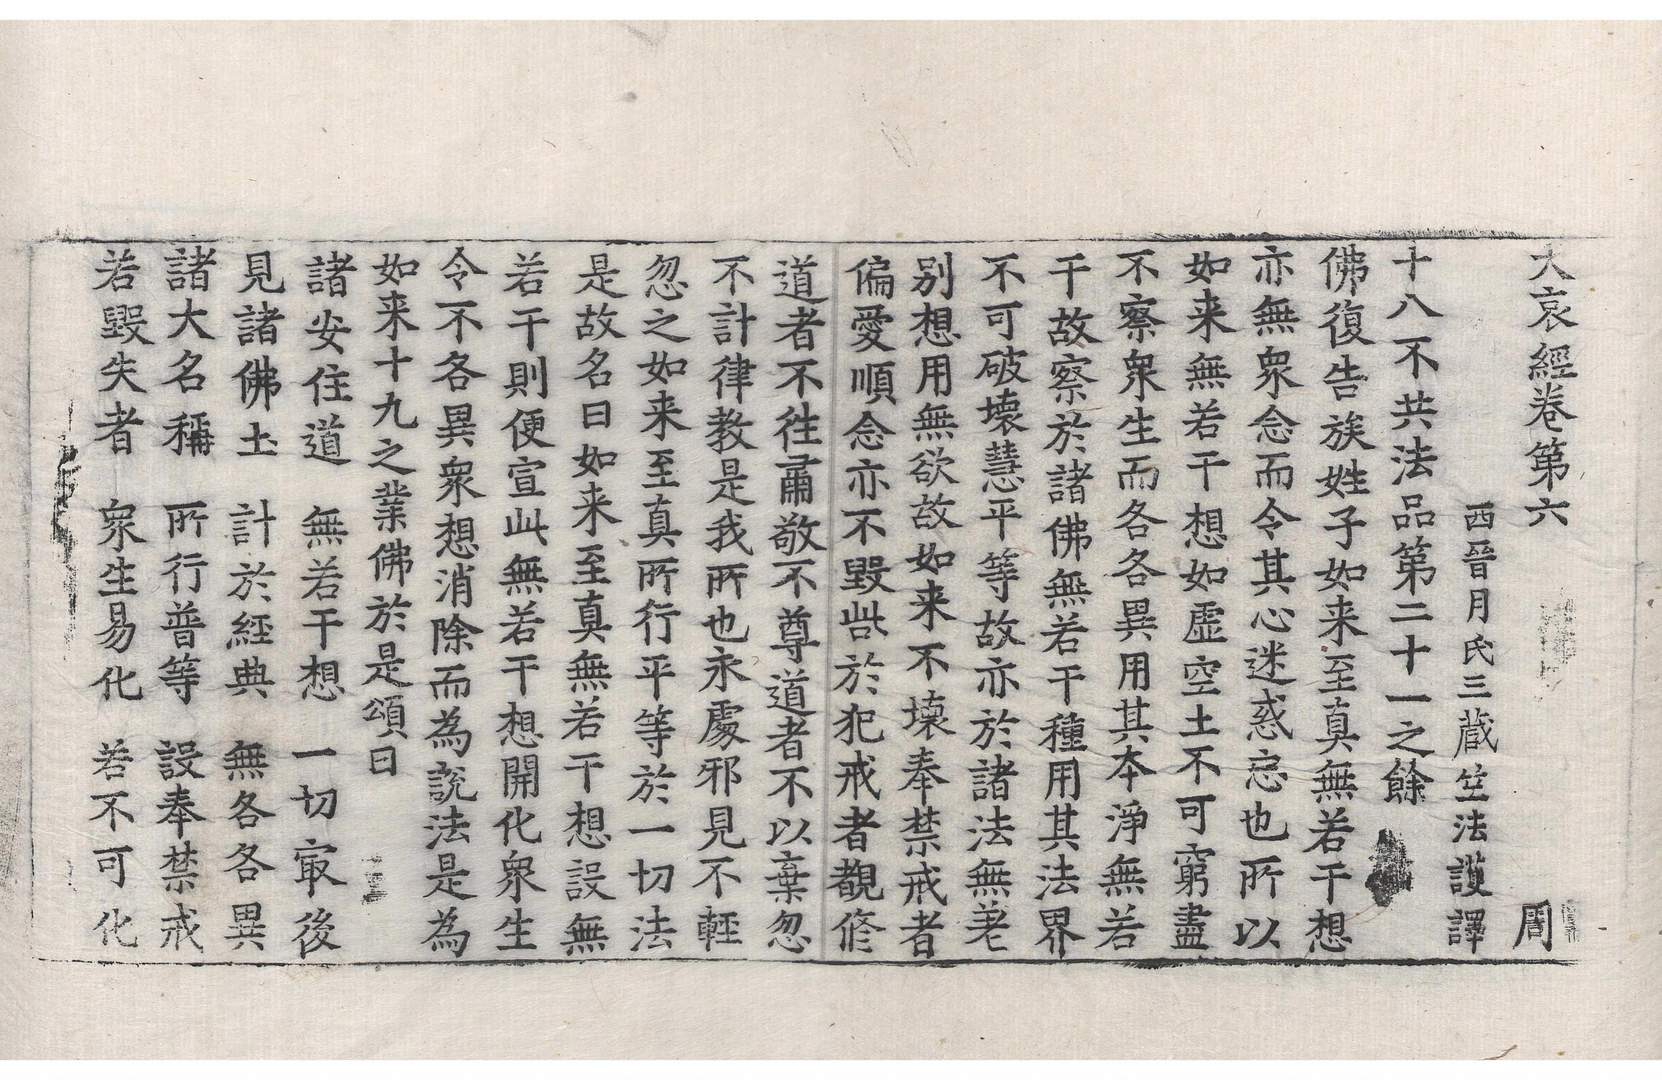 大哀經卷第六 周
西晉月氏三藏竺法護譯
十八不共法品第二十一之餘
佛復告族姓子如来至真無若干想
亦無衆念而令其心迷惑忘也所以
如来無若干想如虛空土不可窮盡
不察衆生而各各異用其本淨無若
干故察於諸佛無若干種用其法界
不可破壞慧平等故亦於諸法無差
別想用無欲故如来不壞奉禁戒者
偏愛順念亦不毀呰於犯戒者覩修
道者不往肅敬不尊道者不以棄忽
不計律教是我所也永處邪見不輕
忽之如来至真所行平等於一切法
是故名曰如来至真無若干想設無
若干則便宣此無若干想開化衆生
令不各異衆想消除而為說法是為
如来十九之業佛於是頌曰
諸安住道 無若干想 一切㝡後
見諸佛土 計於經典 無各各異
諸大名稱 所行普等 設奉禁戒
若毀失者 衆生易化 若不可化